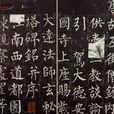 供奉
教談論
引駕大德安
國寺上座賜
大達法師玄秘
塔碑銘并序
南西道都團
觀察處置